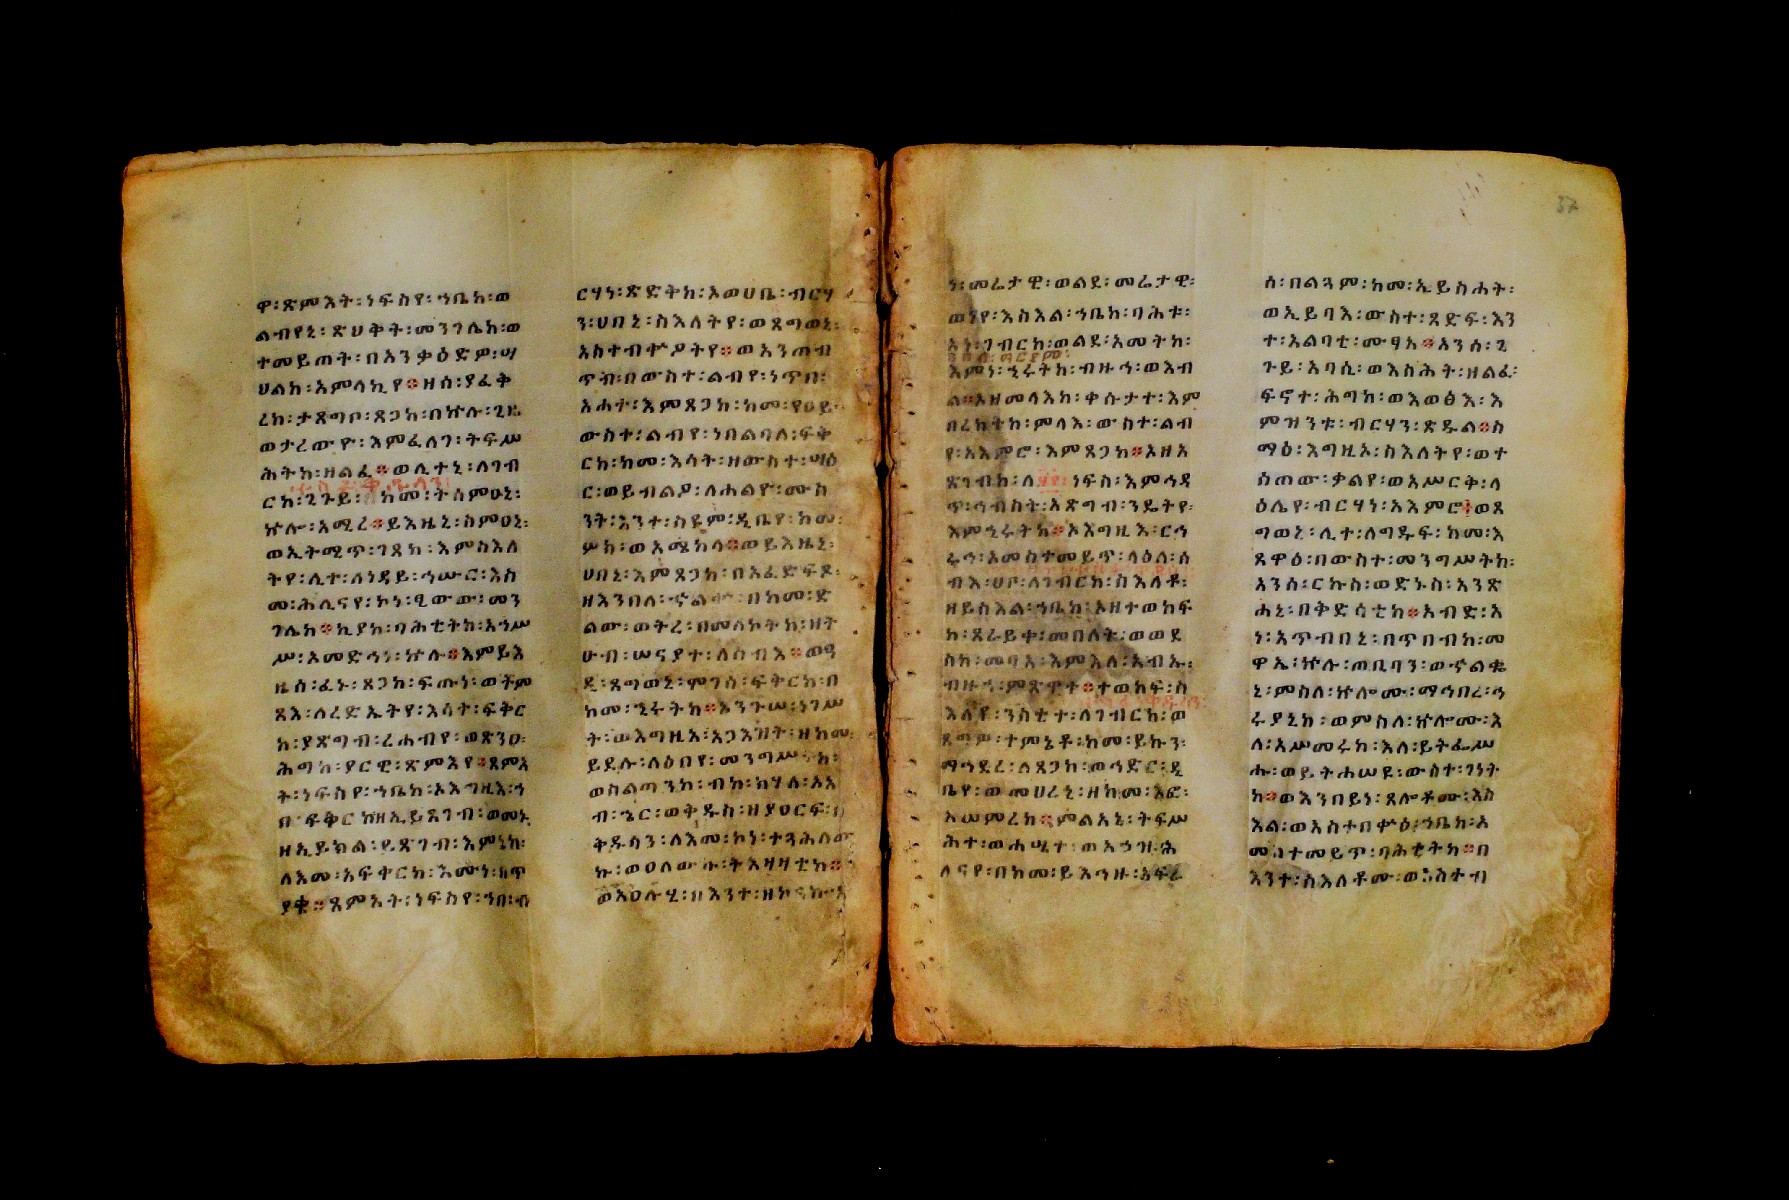 ዋ፡ጽምእት፡ነፍስየ፡ኀቤከ፡ወ
ልብየኒ፡ጽህቅት፡መንገሌከ፡ወ
ተመይጠት፡በአንቃዕድዎ፡ሣ
ህልከ፡አምላኪየ።ዘሰ፡ያፈቅ
ረከ፡ታጸግቦ፡ጸጋከ፡በኵሉ፡ጊዜ
ወታረውዮ፡እምፈለገ፡ትፍሥ
ሕትከ፡ዘልፈ።ወሊተኒ፡ለገብ
ርከ፡ጊጉይ፡ ከመ፡ትሰምዐኒ፡
ኵሎ፡አሚረ።ይእዜኒ፡ስምዐኒ፡
ወኢትሚጥ፡ገጸከ፡እምስእለ
ትየ፡ሊተ፡ለነዳይ፡ኀሡር፡እስ
መ፡ሕሊናየ፡ኮነ፡ዒውው፡መን
ገሌከ።ኪያከ፡ባሕቲትከ፡አኀሥ
ሥ፡ኦመድኀነ፡ኵሉ።እምይእ
ዜሰ፡ፈኑ፡ጸጋከ፡ፍጡነ፡ወችም
ጸእ፡ለረድኤትየ፡እሳተ፡ፍቅር
ከ፡ያጽግብ፡ረሐብየ፡ወጽንዐ፡
ሕግከ፡ያርዊ፡ጽምእየ።ጸምአ
ት፡ነፍስየ፡ኀቤከ፡ኦእግዚእ፡ኀ
በ፡ፍቅርከዘኢይጸገብ፡ወመኑ
ዘኢይክል፡ይጽገብ፡እምኔከ፡
ለእመ፡አፍቀርከ፡እሙነ፡በጥ
ያቄ።ጸምአት፡ነፍስየ፡ኀበ፡ብ
ርሃነ፡ጽድቅከ፡ኦወሀቤ፡ብርሃ
ን፡ሀበኒ፡ስእለትየ፡ወጸግወኒ፡
አስተብቍዖትየ።ወአንጠብ
ጥብ፡በውስተ፡ልብየ፡ነጥበ፡
አሐተ፡እምጸጋከ፡ከመ፡የዐይ
ውስተ፡ልብየ፡ነበልባለ፡ፍቅ
ርከ፡ከመ፡እሳት፡ዘውስተ፡ሣዕ
ር፡ወይብልዖ፡ለሐልዮ፡ሙስ
ንት፡እንተ፡ስዩም፡ዲቤየ፡ከመ፡
ሦክ፡ወአሜከላ።ወይእዜኒ፡
ሀበኒ፡እምጸጋከ፡በአፈድፍዶ፡
ዘእንበለ፡ኍልቍ፡በከመ፡ድ
ልው፡ወትረ፡በመለኮትከ፡ዘት
ሁብ፡ሠናያተ፡ለሰብእ።ወዓ
ዲ፡ጸግወኒ፡ሞገሰ፡ፍቅርከ፡በ
ከመ፡ኂሩትከ።እንጉሠ፡ነገሥ
ት፡ወእግዚአ፡አጋእዝት፡ዘከመ፡
ይደሉ፡ለዕበየ፡መንግሥትከ፡
ወስልጣንከ፡ብከ፡ከሃለ፡ኦአ
ብ፡ኄር፡ወቅዱስ፡ዘያዐርፍ፡በ
ቅዱሳን፡ለእመ፡ኮነ፡ተጓሕለው
ኩ፡ወዐለውኩ፡ትእዛዛቲከ።
ወእዐሉሂ፡በእንተ፡ዘኮናኩ፡እ
ነ፡መሬታዊ፡ወልደ፡መሬታዊ፡
ወባሕቱ፡እስእል፡ኀቤከ፡ባሕቱ፡
አነ፡ገብርከ፡ወልደ፡አመትከ፡
እምነ፡ኂሩትከ፡ብዙኅ፡ወእብ
ል።ኦዘመላእከ፡ቀሱታተ፡እም
በረከትከ፡ምላእ፡ውስተ፡ልብ
የ፡አእምሮ፡እምጸጋከ።ኦዘአ
ጽገብከ፡ለ፶፻፡ነፍስ፡እምኅዳ
ጥ፡ኅብስት፡አጽግብ፡ንዴትየ፡
እምኂሩትከ።ኦእግዚእ፡ርኅ
ሩኅ፡አመስተመይጥ፡ላዕለ፡ሰ
ብእ፡ሀቦ፡ለገብርከ፡ስእለቶ፡
ዘይስእል፡ኀቤከ፡ኦዘተወከፍ
ከ፡ጸራይቀ፡መበለት፡ወወደ
ስከ፡መባአ፡እምእለ፡አብኡ፡
ብዙኀ፡ምጽዋተ።ተወከፍ፡ስ
እለየ፡ንስቲተ፡ለገብርከ፡ወ
ጸግዎ፡ተምኔቶ፡ከመ፡ይኩን፡
ማኅደረ፡ለጸጋከ፡ወኅድር፡ዲ
ቤየ፡ወመሀረኒ፡ዘከመ፡እፎ፡
አሠምረከ።ምልአኒ፡ትፍሥ
ሕተ፡ወሐሤተ፡ወአኀዝ፡ሕ
ሊናየ፡በከመ፡ይእኅዙ፡አፍራ
ሰ፡በልጓም፡ከመ፡ኢይስሐት፡
ወኢይባእ፡ውስተ፡ጸድፍ፡እን
ተ፡አልባቲ፡ሙፃእ።አንሰ፡ጊ
ጉይ፡አባሲ፡ወእስሕት፡ዘልፈ፡
ፍኖተ፡ሕግከ፡ወእወፅእ፡እ
ምዝንቱ፡ብርሃን፡ጽዱል።ስ
ማዕ፡እግዚኦ፡ስእለትየ፡ወተ
ሰጠው፡ቃልየ፡ወአሥርቅ፡ላ
ዕሌየ፡ብርሃነ፡አእምሮ፡ወጸ
ግወኒ፡ሊተ፡ለግዱፍ፡ከመ፡እ
ጸዋዕ፡በውስተ፡መንግሥትከ፡
አንሰ፡ርኩስ፡ወድኑስ፡አንጽ
ሐኒ፡በቅድሳቲከ።አብድ፡አ
ነ፡አጥብበኒ፡በጥበብከ፡መ
ዋኤ፡ኵሉ፡ጠቢባን፡ወኍልቈ
ኒ፡ምስለ፡ኵሎሙ፡ማኅበረ፡ኅ
ሩያኒከ፡ወምስለ፡ኵሎሙ፡እ
ለ፡አሥመሩከ፡እለ፡ይትፌሥ
ሑ፡ወይትሐሠዩ፡ውስተ፡ገነት
ከ።ወእንበይነ፡ጸሎቶሙ፡እስ
እል፡ወአስተበቍዕ፡ኀቤከ፡አ
መስተመይጥ፡ባሕቲትከ።በ
እንተ፡ስእለቶሙ፡ወአስተብ